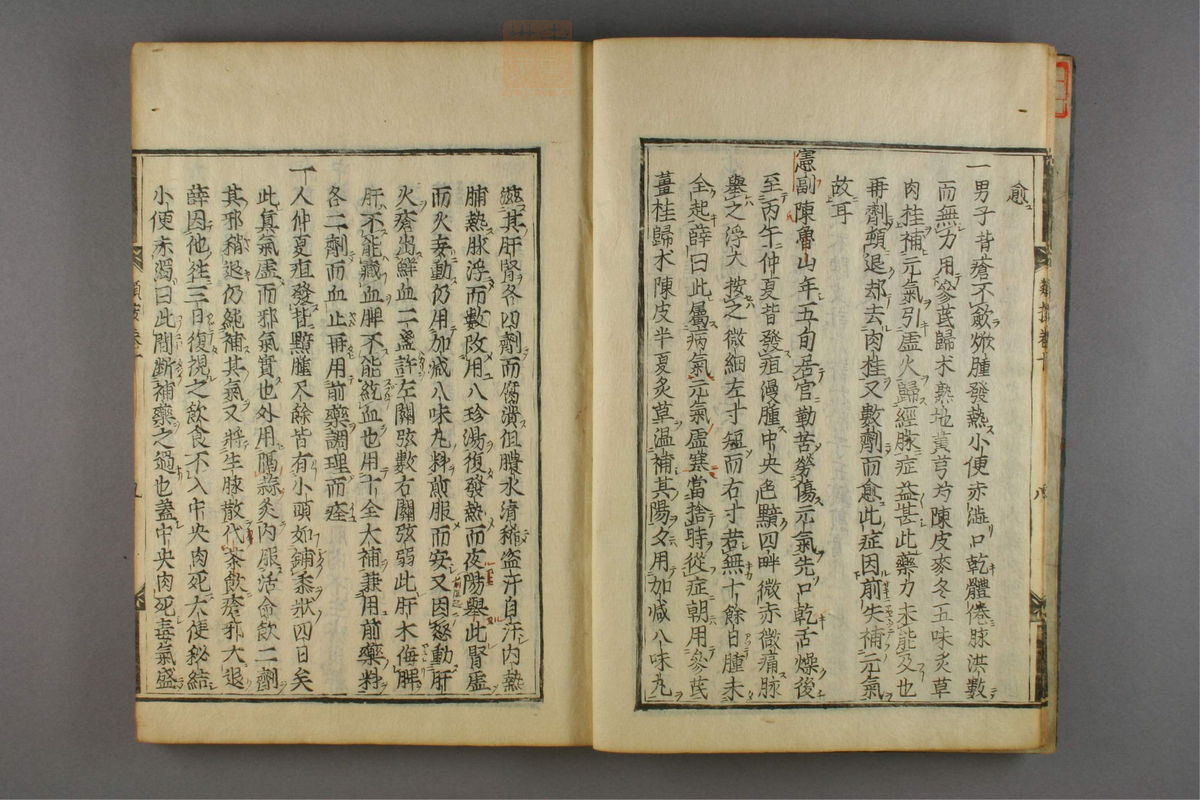 愈
一男子背瘡不斂焮腫發熱小便赤澁口乾體倦脉洪數
而無力用參芪歸朮熟地黃芎芍陳皮麥冬五味炙草
肉桂補元氣引虛火歸經脉症益甚此藥力未能及也
再劑頓退却去肉桂又數劑而愈此症因前失補元氣
故耳
憲副陳魯山年五旬居官勤苦勞傷元氣先口乾舌燥後
至丙午仲夏背發疽漫腫中央色黯四畔微赤微痛脉
舉之浮大按之微細左寸短而右寸若無十餘日腫未
全起薛曰此屬病氣元氣虛寒當捨時從症朝用參芪
薑桂歸朮陳皮半夏炙草溫補其陽夕用加減八味丸
滋其肝腎各四劑而腐潰但膿水清稀盜汗自汗內熱
脯熱脉浮而數改用八珍湯復發熱而夜陽舉此腎虛
而火妄動仍用加減八味丸料煎服而安又因怒動肝
火瘡出鮮血二盞許左關弦數右關弦弱此肝木侮脾
肝不能藏血脾不能統血也用十全大補兼用前藥料
各二劑而血止再用前藥調理而痊
一人仲夏疽發背黯腫尺餘皆有小頭如鋪黍狀四日矣
此眞氣虛而邪氣實也外用隔蒜灸內服活命飲二劑
其邪稍退仍純補其氣又將生脉散代茶飲瘡邪大退
薛因他往三日復視之飲食不入中央肉死大便秘結
小便赤濁曰此間斷補藥之過也蓋中央肉死毒氣盛